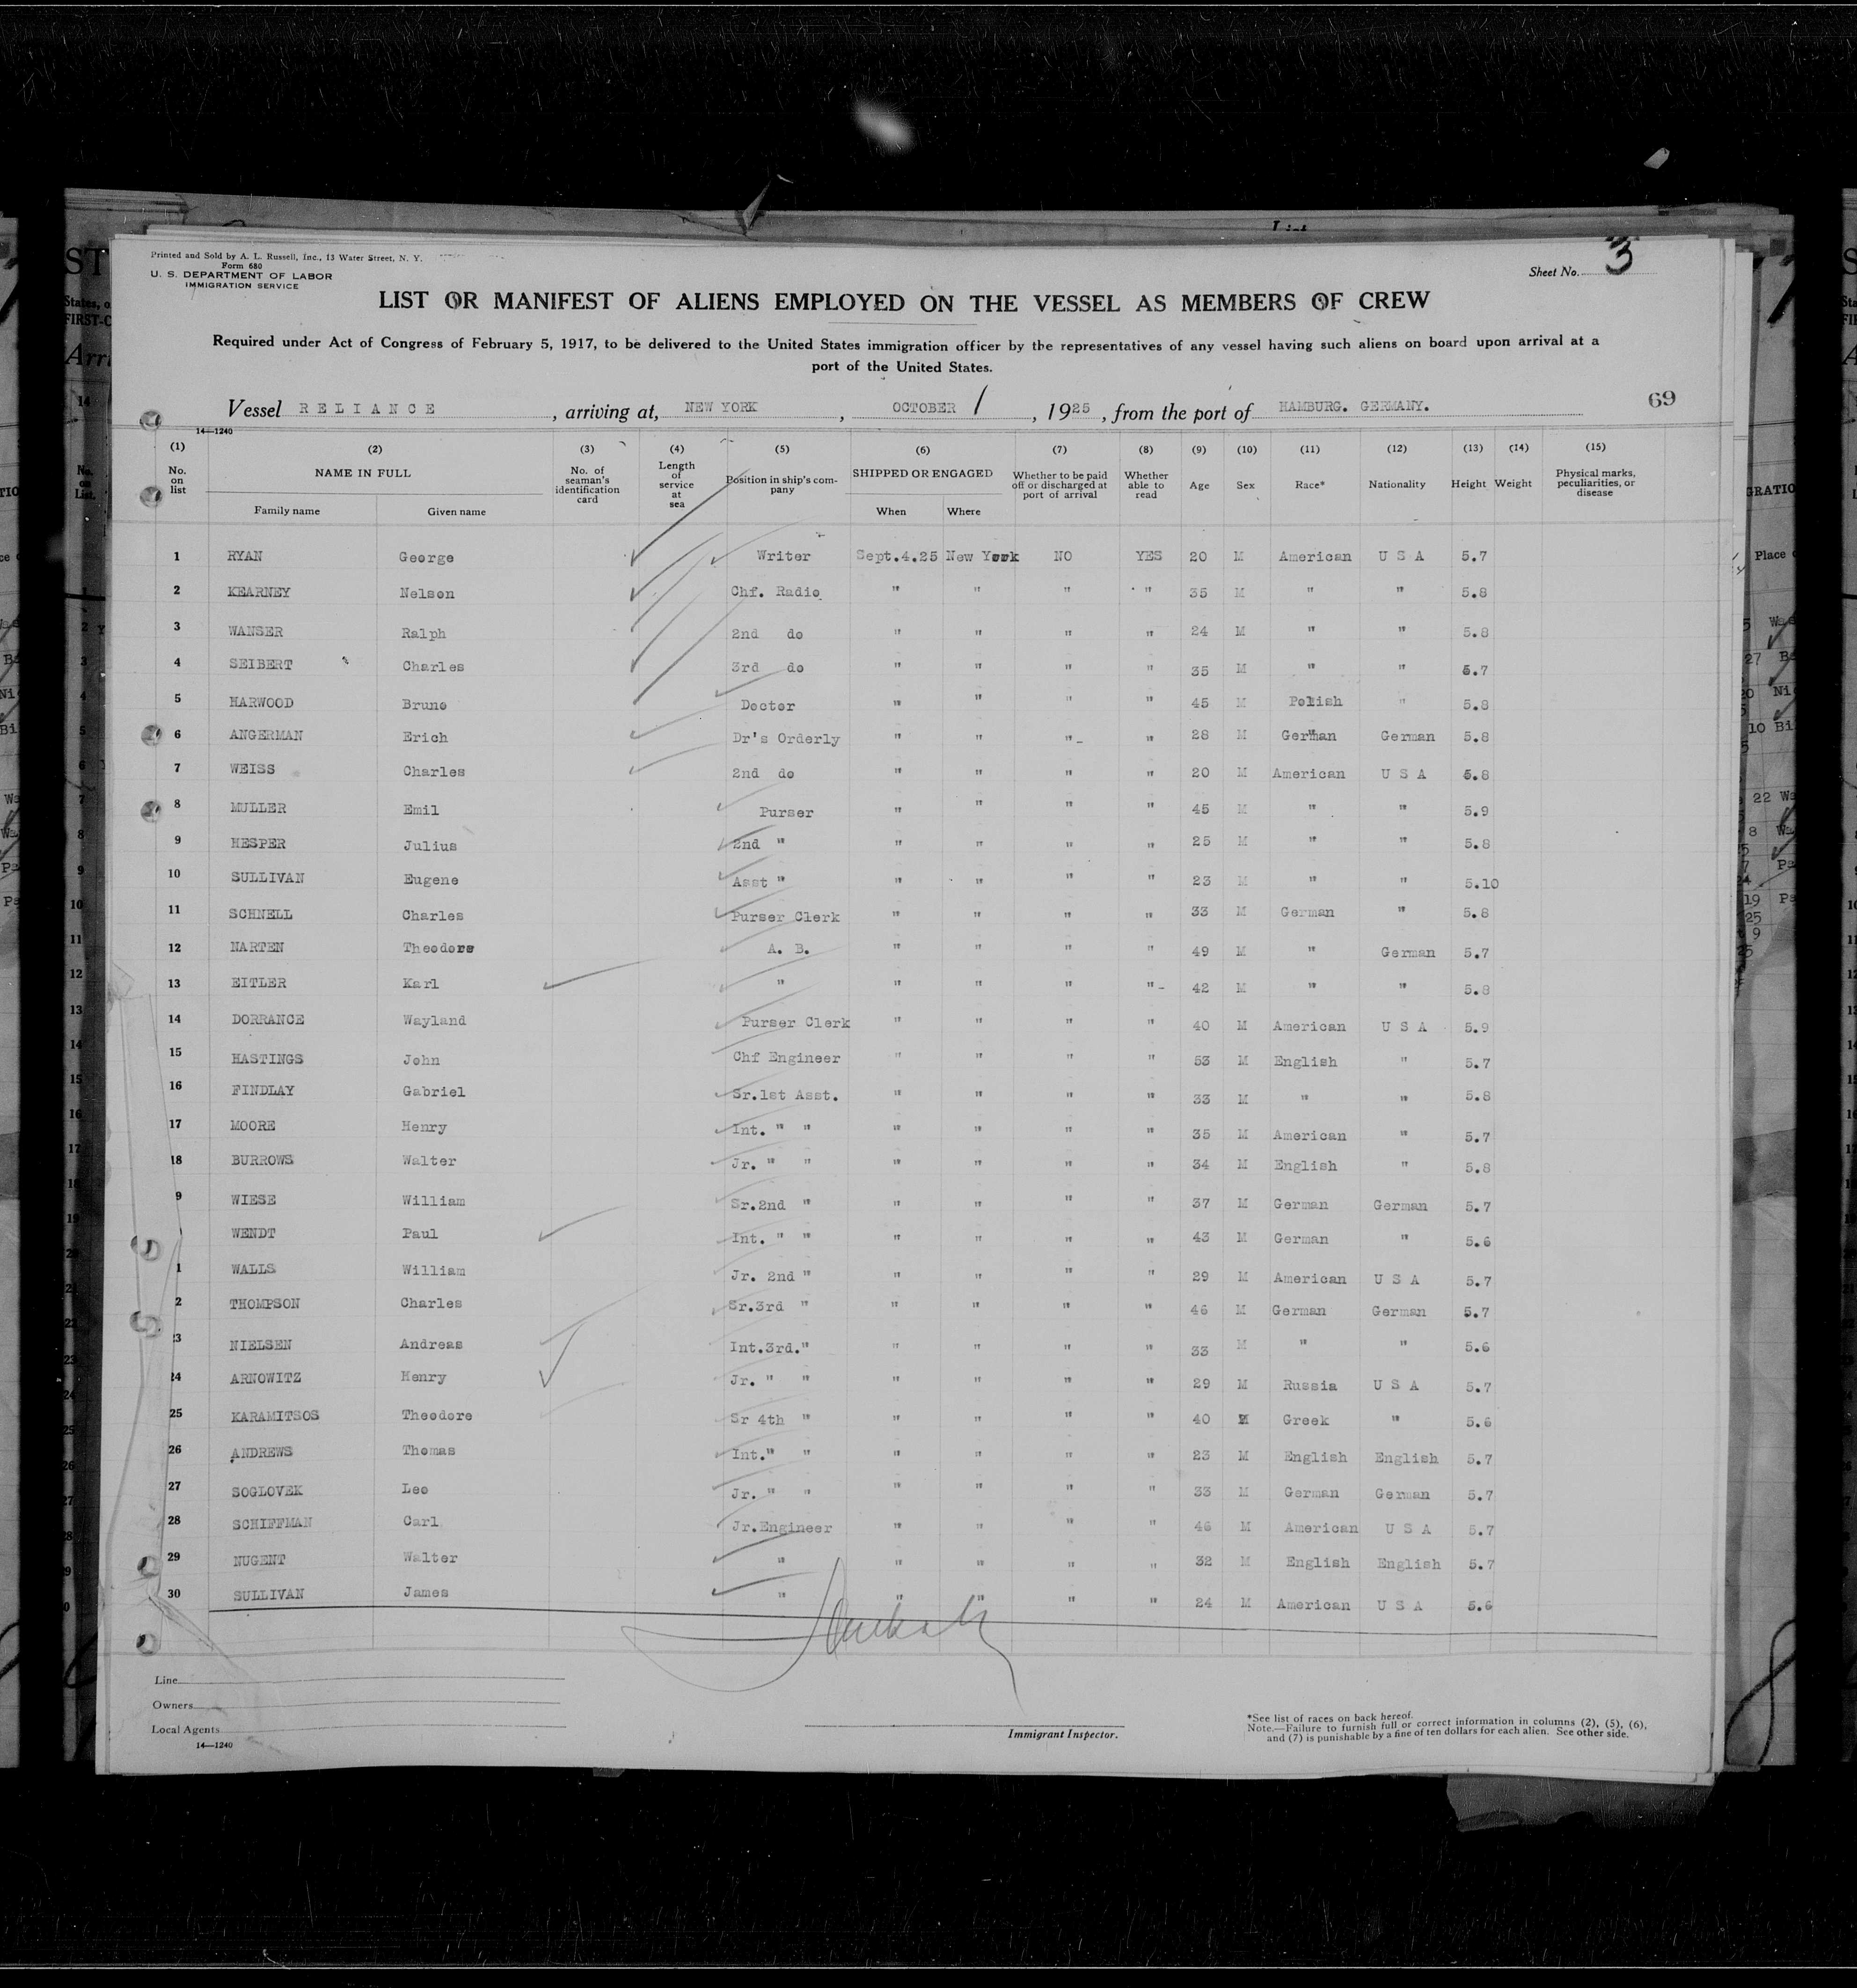 Printed and Sold by A. L. Russell, Inc., 13 Water Street, N. Y.
Form 680
U. S. DEPARTMENT OF LABOR
IMMIGRATION SERVICE
Sheet No. 3
LIST OR MANIFEST OF ALIENS EMPLOYED ON THE VESSEL AS MEMBERS OF CREW
Required under Act of Congress of February 5, 1917, to be delivered to the United States immigration officer by the representatives of any vessel having such aliens on board upon arrival at a
port of the United States.
Vessel RELIANCE, arriving at, NEW YORK, OCTOBER 1, 1925, from the port of HAMBURG. GERMANY.
69
14—1240
(1) (2) (3) (4) (5) (6) (7) (8) (9) (10) (11) (12) (13) (14) (15)
No. on list NAME IN FULL Family name Given name No. of seaman's identification card Length of service at sea Position in ship's company SHIPPED OR ENGAGED When Where Whether to be paid off or discharged at port of arrival Whether able to read Age Sex Race* Nationality Height Weight Physical marks, peculiarities, or disease
1 RYAN George Writer Sept.4.25 New York NO YES 20 M American U S A 5.7
2 KEARNEY Nelson Chf. Radio " " " " 35 M " " 5.8
3 WANSER Ralph 2nd do " " " " 24 M " " 5.8
4 SEIBERT Charles 3rd do " " " " 35 M " " 5.7
5 HARWOOD Bruno Doctor " " " " 45 M Polish " 5.8
6 ANGERMAN Erich Dr's Orderly " " " " 28 M German German 5.8
7 WEISS Charles 2nd do " " " " 20 M American U S A 5.8
8 MULLER Emil Purser " " " " 45 M " " 5.9
9 HESPER Julius 2nd " " " " " 25 M " " 5.8
10 SULLIVAN Eugene Asst " " " " " 23 M " " 5.10
11 SCHNELL Charles Purser Clerk " " " " 33 M German " 5.8
12 NARTEN Theodore A. B. " " " " 49 M " German 5.7
13 EITLER Karl " " " " " 42 M " " 5.8
14 DORRANCE Wayland Purser Clerk " " " " 40 M American U S A 5.9
15 HASTINGS John Chf Engineer " " " " 53 M English " 5.7
16 FINDLAY Gabriel Sr.1st Asst. " " " " 33 M " " 5.8
17 MOORE Henry Int. " " " " " " 35 M American " 5.7
18 BURROWS Walter Jr. " " " " " " 34 M English " 5.8
9 WIESE William Sr.2nd " " " " " 37 M German German 5.7
WENDT Paul Int. " " " " " " 43 M German " 5.6
1 WALLS William Jr. 2nd " " " " " 29 M American U S A 5.7
2 THOMPSON Charles Sr.3rd " " " " " 46 M German German 5.7
23 NIELSEN Andreas Int.3rd." " " " " 33 M " " 5.6
24 ARNOWITZ Henry Jr. " " " " " " 29 M Russia U S A 5.7
25 KARAMITSOS Theodore Sr 4th " " " " " 40 M Greek " 5.6
26 ANDREWS Thomas Int." " " " " " 23 M English English 5.7
27 SOGLOVEK Leo Jr. " " " " " " 33 M German German 5.7
28 SCHIFFMAN Carl Jr.Engineer " " " " 46 M American U S A 5.7
29 NUGENT Walter " " " " " 32 M English English 5.7
30 SULLIVAN James " " " " " 24 M American U S A 5.6
Line
Owners
Local Agents
14—1240
Immigrant Inspector.
*See list of races on back hereof.
Note.—Failure to furnish full or correct information in columns (2), (5), (6),
and (7) is punishable by a fine of ten dollars for each alien. See other side.